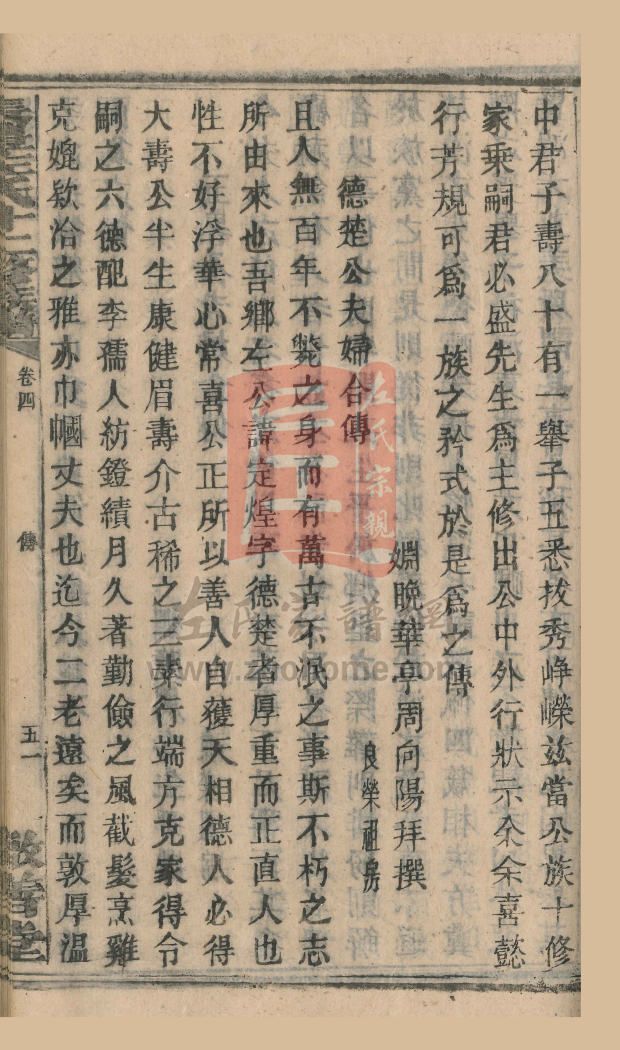 中君子壽八十有一舉子五悉拔秀崢嶸兹當公族十修
家乘嗣君必盛先生爲主修出公中外行狀示余余喜懿
行芳規可爲一族之矜式於是爲之傳
德楚公夫婦合傳
良榮祖房
姻晚華亭周向陽拜撰
且人無百年不斃之身而有萬古不泯之事斯不朽之志
所由來也吾鄉左公諱定煌字德楚者厚重而正直人也
性不好浮華心常喜公正所以善人自獲天相德人必得
大壽公半生康健眉壽介古稀之三素行端方克家得令
嗣之六德配李孺人紡鐙績月久著勤儉之風截髮烹雞
克媲欵洽之雅亦巾幗丈夫也迄今二老遠矣而敦厚溫
卷四
傳
五一
敬善堂
左氏宗親
左氏家譜網